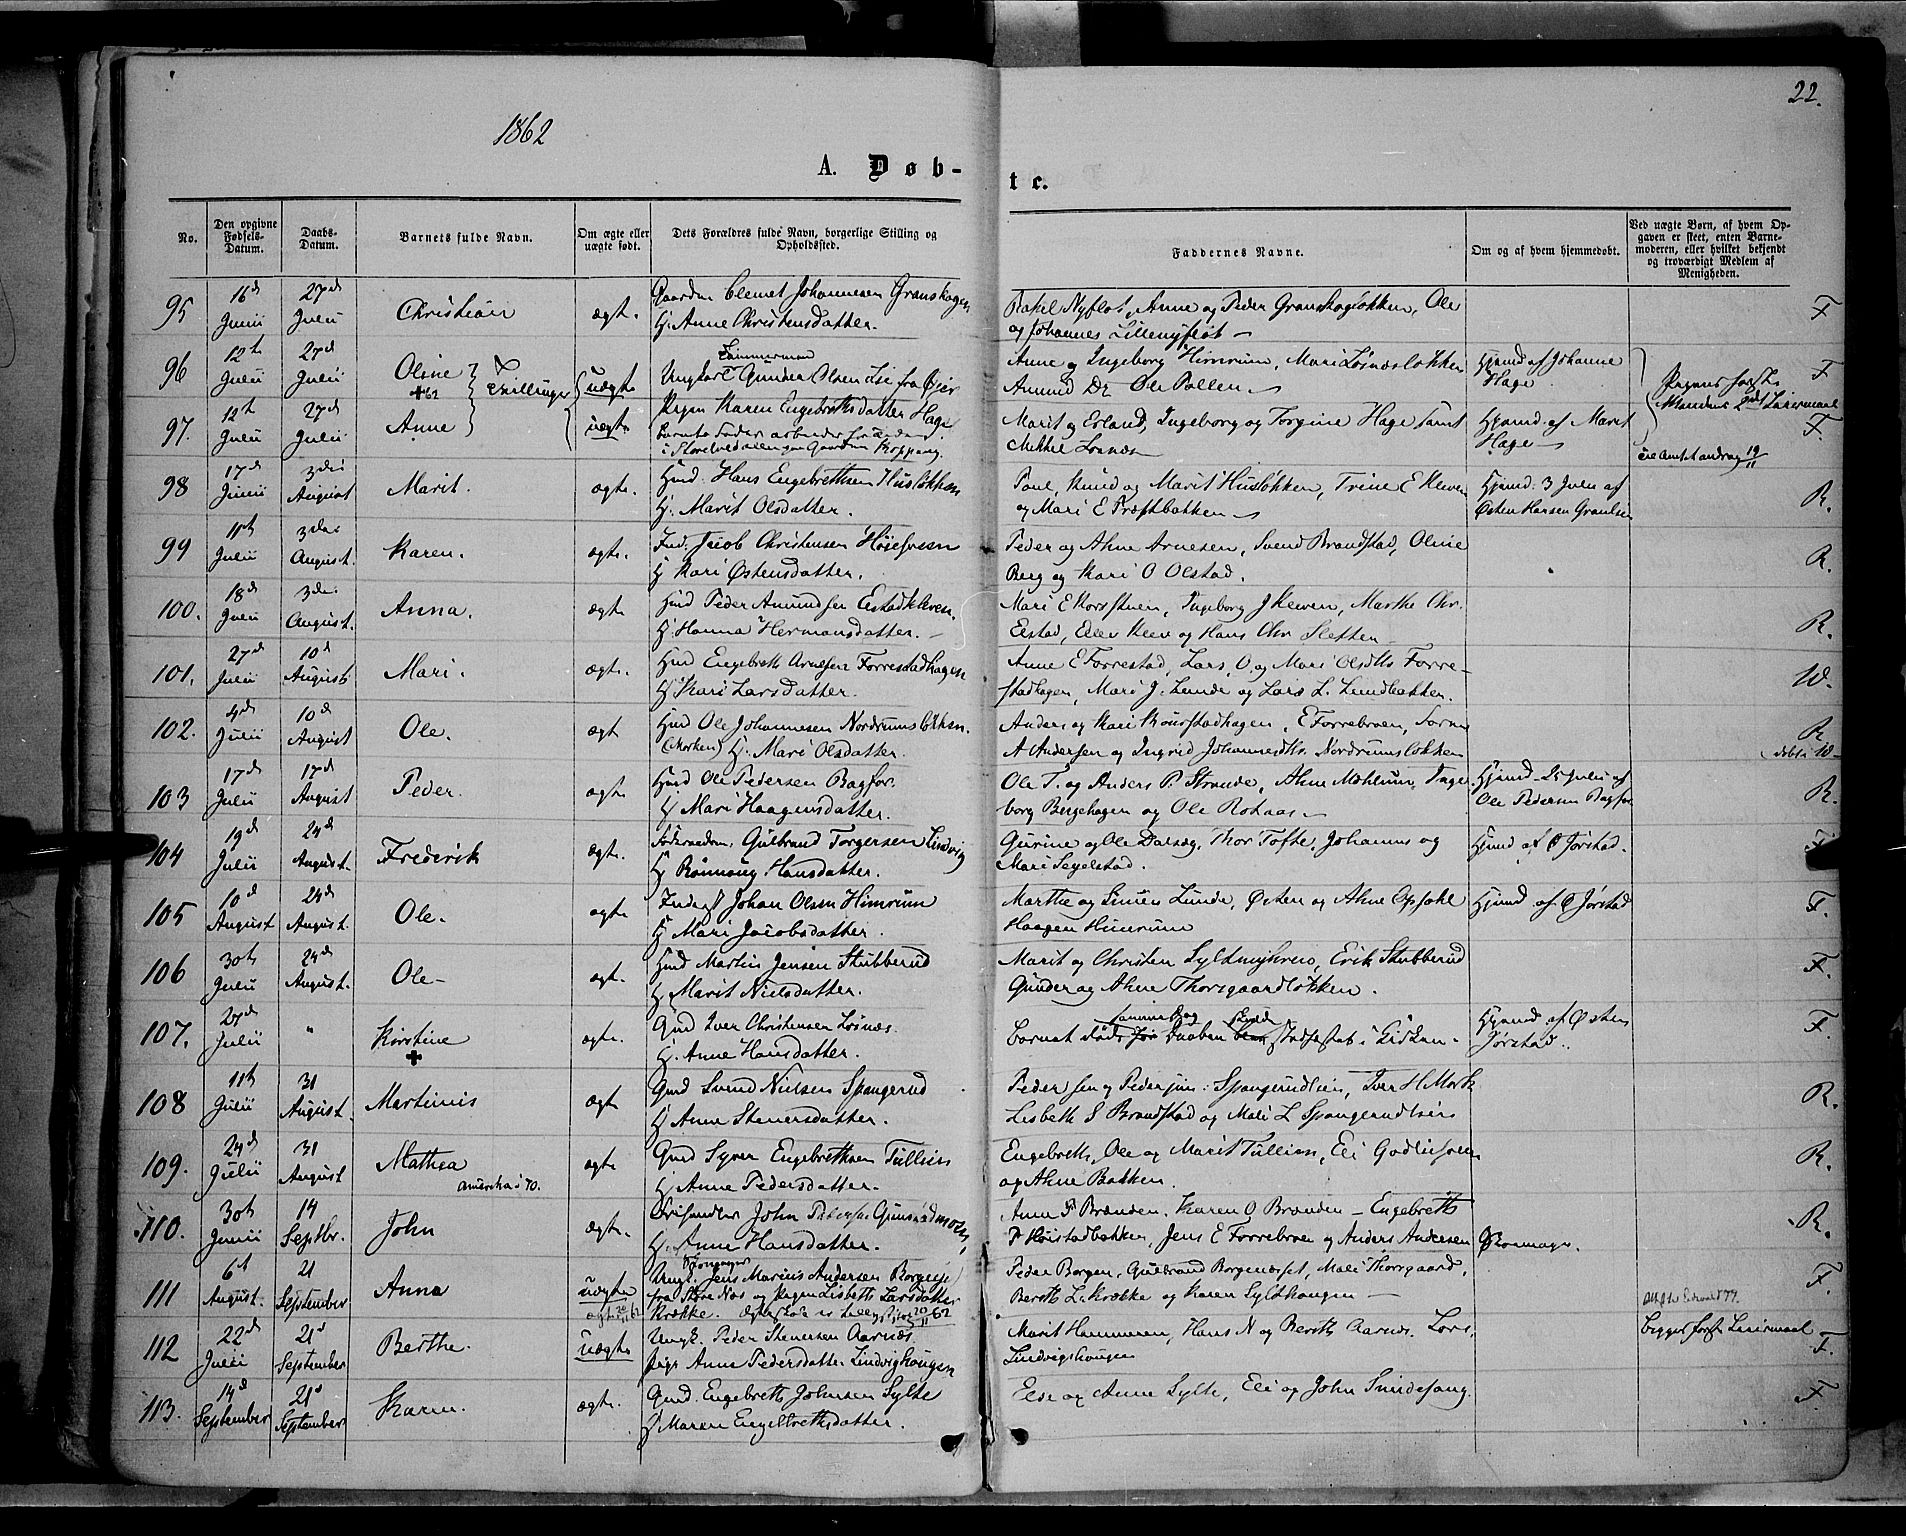 22.
1862
A. Døb-
te.
No.
Den opgivne Fødsels-Datum.
Daabs-Datum.
Barnets fulde Navn.
Om ægte eller uægte født.
Dets Forældres fulde Navn, borgerlige Stilling og Opholdssted.
Faddernes Navne.
Om og af hvem hjemmedøbt.
Ved uægte Børn, af hvem Opgaven er skeet, enten Barnemoderen, eller hvilket bekjendt og troværdigt Medlem af Menigheden.
95 16d Junii 27d Julii Christian ægt.
Clemet Johannesen Granshagen
H. Anne Christensdatter.
Rakel Nyfløt, Anne og Peder Granshagløkken, Ole
og Johannes Lillenyfløt
F
96 12te Julii 27d Julii Oline +62 Tvillinger uægte
Ungkarl Gunder Olsen fra Øier
Anne og Ingeborg Himrum, Mari Løsnæsløkken
Amund Do Ole Pollen
Hjemd af Johanne
Hage
F
97. 12t Julii 27d Julii Anne uægte
Pigen Karen Engebretsdatter Hage
Barnets Fader arbeider
i Storelvedalen paa Gaarden Koppang.
Marit og Erland, Ingeborg og Torgine Hage samt
Mikkel Losnæs
Hjemd. af Marit
Hage
Pigens første
Mandens 2det Leiermaal
19/11
F.
98 17d Junii 3die August Marit. ægte.
Husd. Hans Engebrethsen Husløkken
H. Marit Olsdatter.
Poul, Knud og Marit Husløkken, Trine E Kleven
og Mari E Præstbakken
Hjemd: 3 Julii af
Østen Hansen
R.
99 11te Julii 3die August. Karen. ægte.
Ind. Jacob Christensen
H Kari Østensdatter.
Peder og Ahne Arnesen, Svend Brandstad, Oline
Berg og Kari O Olstad.
R.
100. 18d Julii 3die August. Anna. ægte
Husd Peder Amundsen Eistadkleven.
H Hanna Hermansdatter.
Mari E Korsstuen, Ingeborg J Kleven, Marthe Chr.
Eistad, Elev Klev og Hans Chr Sletten
R.
101. 27d Julii 10d August Mari. ægte.
Husd Engebreth Arnesen Forrestadhagen
H Kari Larsdatter.
Anne E Forrestad, Lars O. og Mari Olsdtr Forre-
stadhagen, Mari J. Lunde og Lars L. Lundbakken.
W.
102. 4d Julii 10d August Ole. ægt
Husd Ole Johannesen Nordrumsløkken.
H. Mari Olsdatter.
Anders og Kari Kourstadhagen, E Forrebroen,
A Andersen og Ingrid Johannesdtr. Nordrumsløkken
R
døbt i W
103 17d Julii 17d August Peder. ægte.
Husd Ole Pedersen Bagfor.
H Mari Haagensdatter.
Ole T. og Anders P. Strande, Ahne Mæhlum, Inge-
borg Bergehagen og Ole Rokaas
Hjemd. Julii af
Ole Pedersen Bagfor
R.
104 19d Julii 24d August. Frederik ægte.
Gulbrand Torgersen Lindvig
H Rønnoug Hansdatter.
Gurine og Ole Dalseg, Thor Tofte, Johannes og
Mari Segelstad.
Hjemd af O Jørstad.
F
105 10d August 24d August. Ole. ægte
Johan Olsen Himrum
H Mari Jacobsdatter.
Marthe og Lunde, Østen og Ahne Opsahl
Haagen Himrum
Hjemd af O Jørstad
F.
106 30te Julii 24d August. Ole ægt.
Husd Martin Jensen Stubberud
H Marit Nielsdatter.
Marit og Christen, Erik Stubberud
Gunder og Ahne Thorsgaardløkken.
F.
107. 27d Julii " Kirstine + ægte.
Gmd Iver Christensen Løsnæs.
H. Anne Hansdatter.
Barnet døde før Daaben stadfæstet i Kirken.
Hjemd af Østen
Jørstad.
F.
108 11te Julii 31 August. Martinus ægt
Gmd Svend Nielsen Spangerud
H Anne Stenersdatter.
Peder sen og Peder jun: Spangrudlien, Iver H Mork
Lisbeth S Brandstad og Mali L Spangerudlien
R.
109. 24d Julii 31 August Mathea Amerika i 70. ægt
Gmd Syver Engebrethsen Tullien
H Anne Pedersdatter.
Engebreth, Ole og Marit Tullien, Eli
og Ahne Bakken.
R.
110. 30te Junii 14 Septbr. John ægte.
John Pedersen
H. Anne Hansdatter.
Anne P Brænden, Karen O Brænden – Engebreth
P Kristadbakken, Jens E Forrebroen og Anders Andersen
R.
111 6t August. 21 September Anna uægte
Ungk. Jens Marius Andersen
og Pigen Lisbeth Larsdatter
Krække.
Peder Borgen, Gulbrand Borgenæset, Mali Thorsgaard,
Bereth L. Krække og Karen Sylthaugen
F.
112 22d Julii 21d September Berthe. uægte
Ungk. Peder Stenersen Aarnæs.
Pige Anne Pedersdatter Lindvighougen
Marit Hammeren, Hans N og Bereth Aarnæs. Lars
Lindvigshougen
Begges første Leiermaal
F.
113. 14d September 21d September Karen. ægte.
Gmd. Engebreth Johnsen Sylte
H Maren Engebrethsdatter.
Else og Anne Sylte, Eli og John Sundesang.
F.